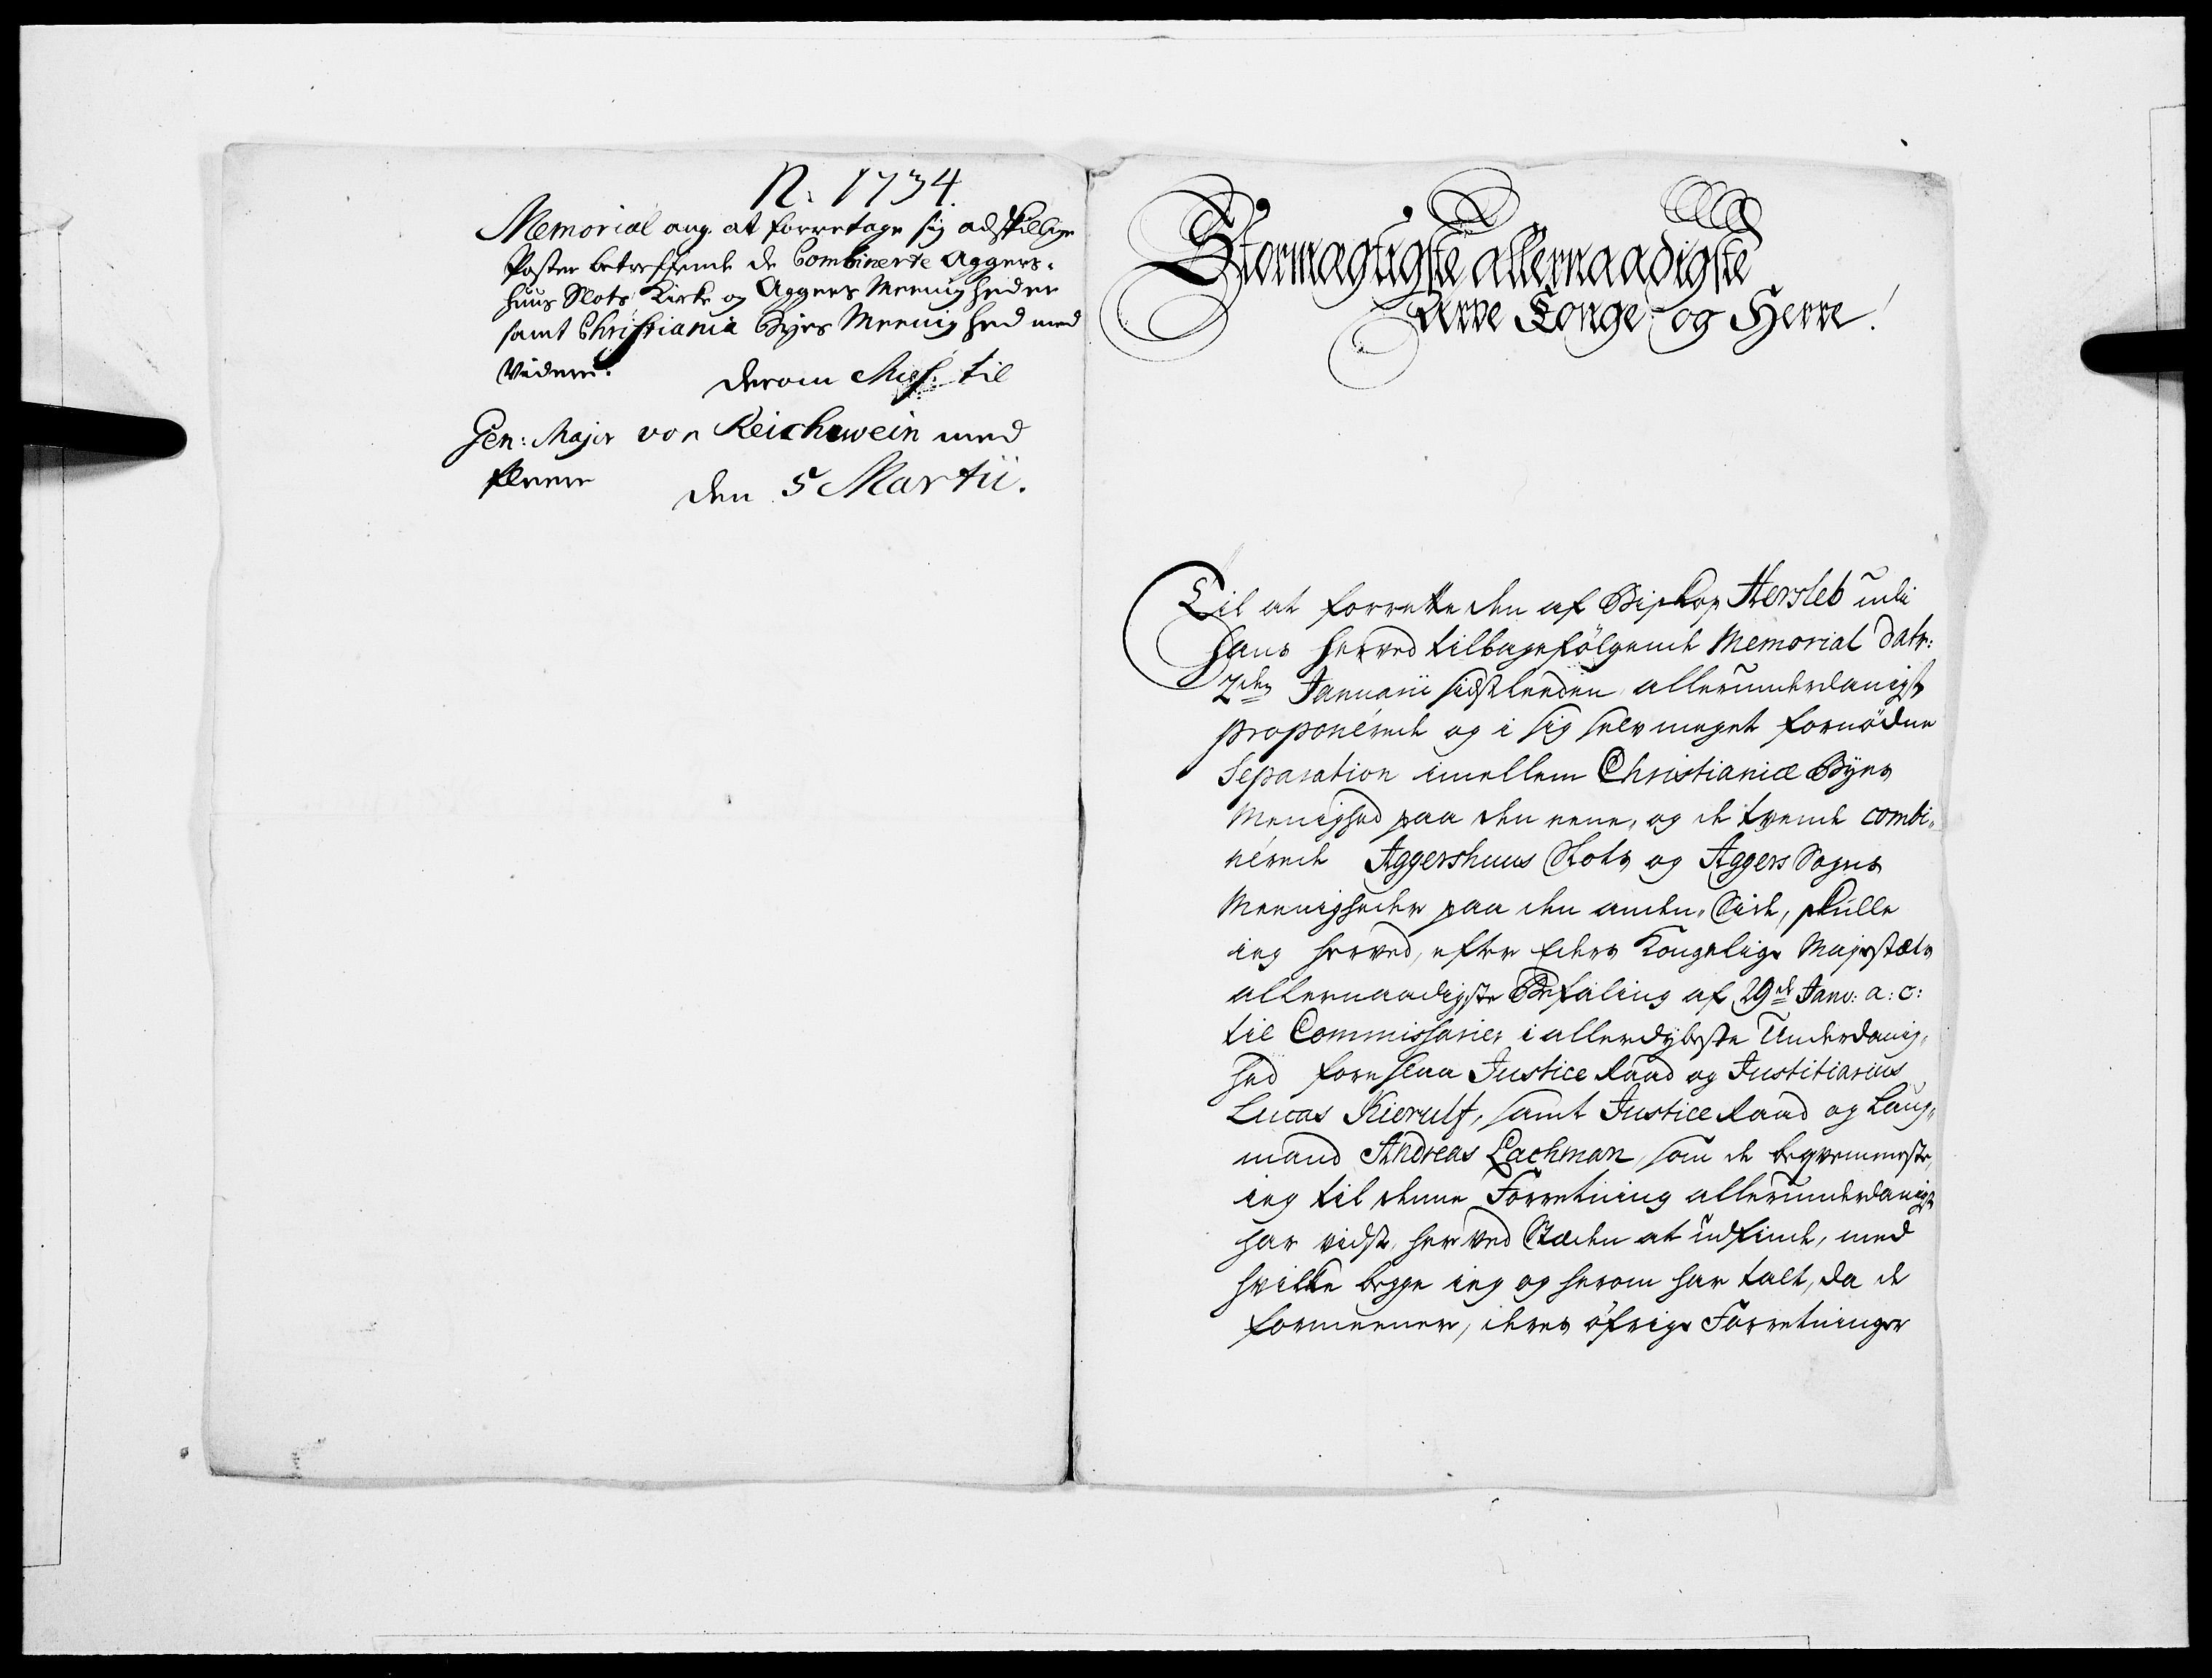 N. 1734.
Memorial ang. at forretage sig adskillige
Poster betreffende de Combinerte Aggers-
huus Slots Kirke og Aggers Meenigheder
samt Christiania Byes Meenighed med
Videre.
derom Miss: til
Gen: Major von Reichwein med
fleere
den 5 Martii.
Stormægtigste allernaadigste
Arve Konge og Herre!
Til at forrette den af Biskop Hersleb udi
hans herved tilbagefölgende Memorial datr:
2den Januarii sidstleeden allerunderdanigst
proponérede og i sig selv meget fornödne
Separation imellem Christianiæ Byes
Menighed paa den eene, og de tvende combi-
nérede Aggershuus Slots og Aggers Sogns
Meenigheder paa den anden Side, skulle
ieg herved, efter Eders Kongelige Majestæts
allernaadigste Befaling af 29de Janv: a: c:
til Commissarier i allerdybeste Underdanig-
hed foreslaa Justice Raad og Justitiarius
Lucas Kierulf, samt Justice Raad og Laug-
mand Andreas Lachman, som de beqvemmeste,
ieg til denne Forretning allerunderdanigst
har vidst, her ved Stæden at udfinde, med
hvilke begge ieg og herom har talt, da de
formeener, deres öfrige Forretninger